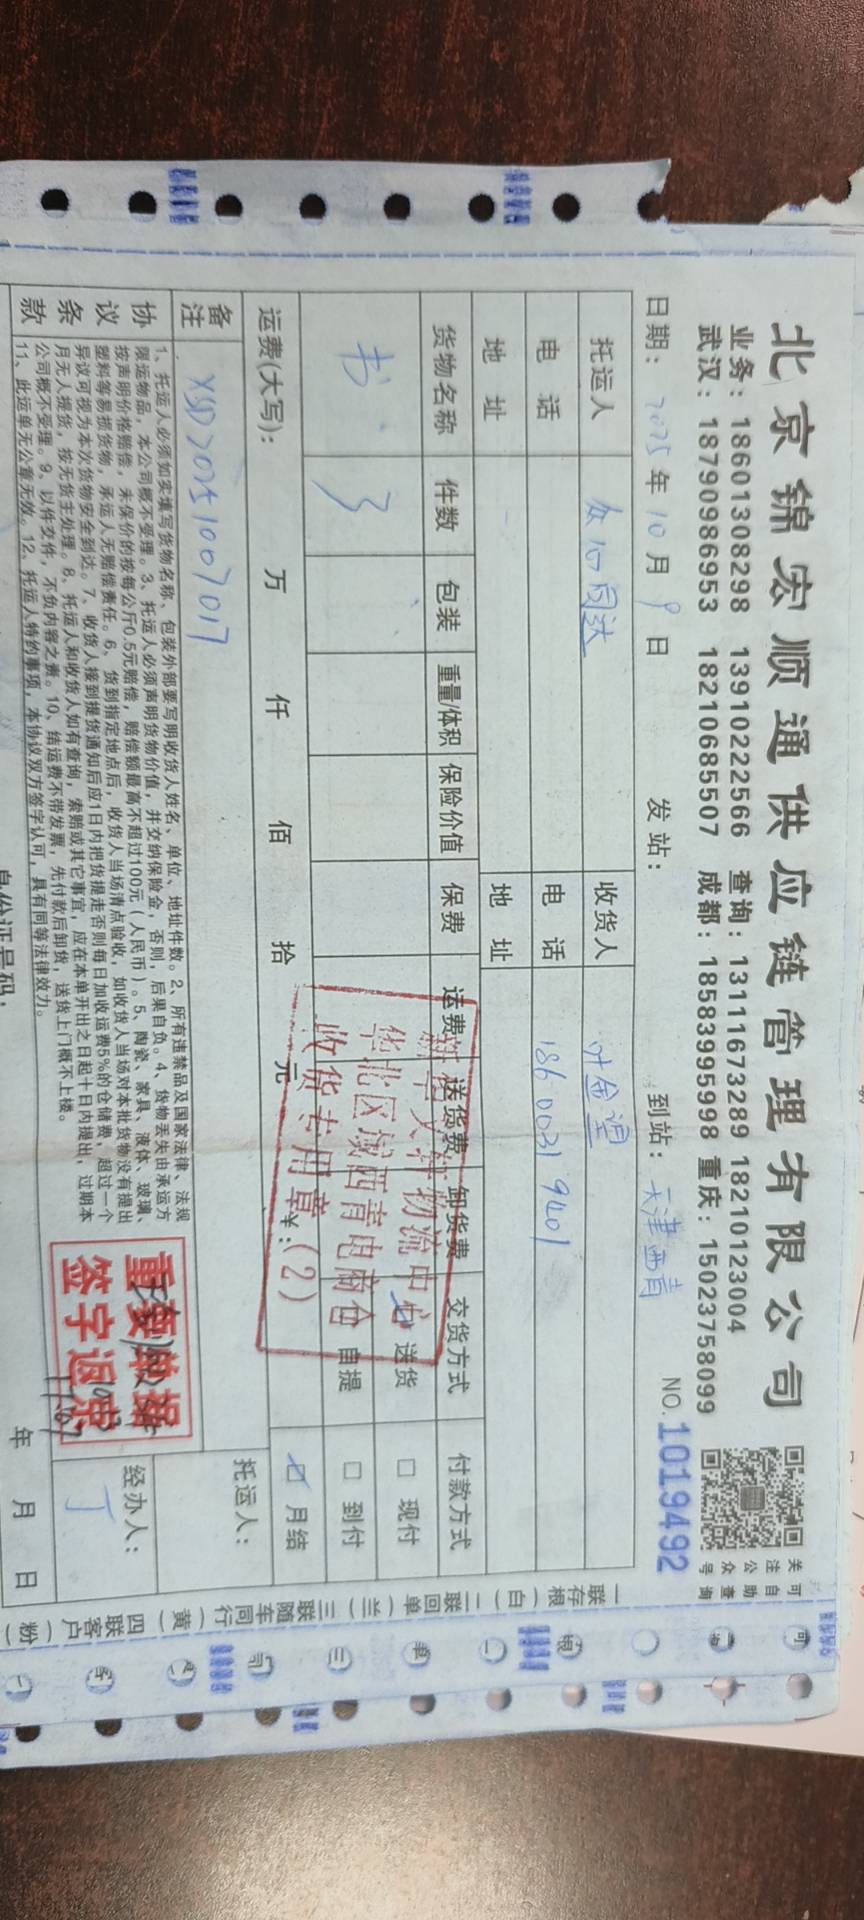 北京锦宏顺通供应链管理有限公司
业务：18601308298 13910222566 查询：13111673289 18210123004
武汉：18790986953 18210685507 成都：18583995998 重庆：15023758099
关注公众号
可自助查询
日期：2025年10月9日 发站： 到站：天津西青 NO.1019492
托运人 众心同达 收货人 叶金迎
电话 电话 18600319401
地址 地址
货物名称 件数 包装 重量/体积 保险价值 保费 运费 送货费 卸货费 交货方式 付款方式
书 3 送货 □ 现付
自提 □ 到付
运费(大写)： 万 仟 佰 拾 元 ¥： 月结
物流中心
华北区域西青电商仓
收货专用章(2)
备注 XSD20251007017
托运人：
协议条款
1、托运人必须如实填写货物名称、包装外部要写明收货人姓名、单位、地址件数。2、所有违禁品及国家法律、法规
限运物品，本公司概不受理。3、托运人必须声明货物价值，并交纳保险金，否则，后果自负。4、货物丢失由承运方
按声明价格赔偿，未保价的按每公斤0.5元赔偿，赔偿额最高不超过100元（人民币）。5、陶瓷、家具、液体、玻璃、
塑料等易损货物，承运人无赔偿责任。6、货到指定地点后，收货人当场清点验收，如收货人当场对本批货物没有提出
异议可视为本次货物安全到达。7、收货人接到提货通知后应1日内把货提走否则每日加收运费5%的仓储费，超过一个
月无人提货，按无货主处理。8、托运人和收货人如有查询，索赔或其它事宜，应在本单开出之日起十日内提出，过期本
公司概不受理。9、以件交件，不负内容之责。10、结运费不带发票，先付款后卸货，送货上门概不上楼。
11、此运单无公章无效。12、托运人特约事项，本协议双方签字认可，具有同等法律效力。
重要单据
签字返回
经办人：
丁
身份证号码：
年 月 日
一联存根（白）二联回单（兰）三联随车同行（黄）四联客户（粉）